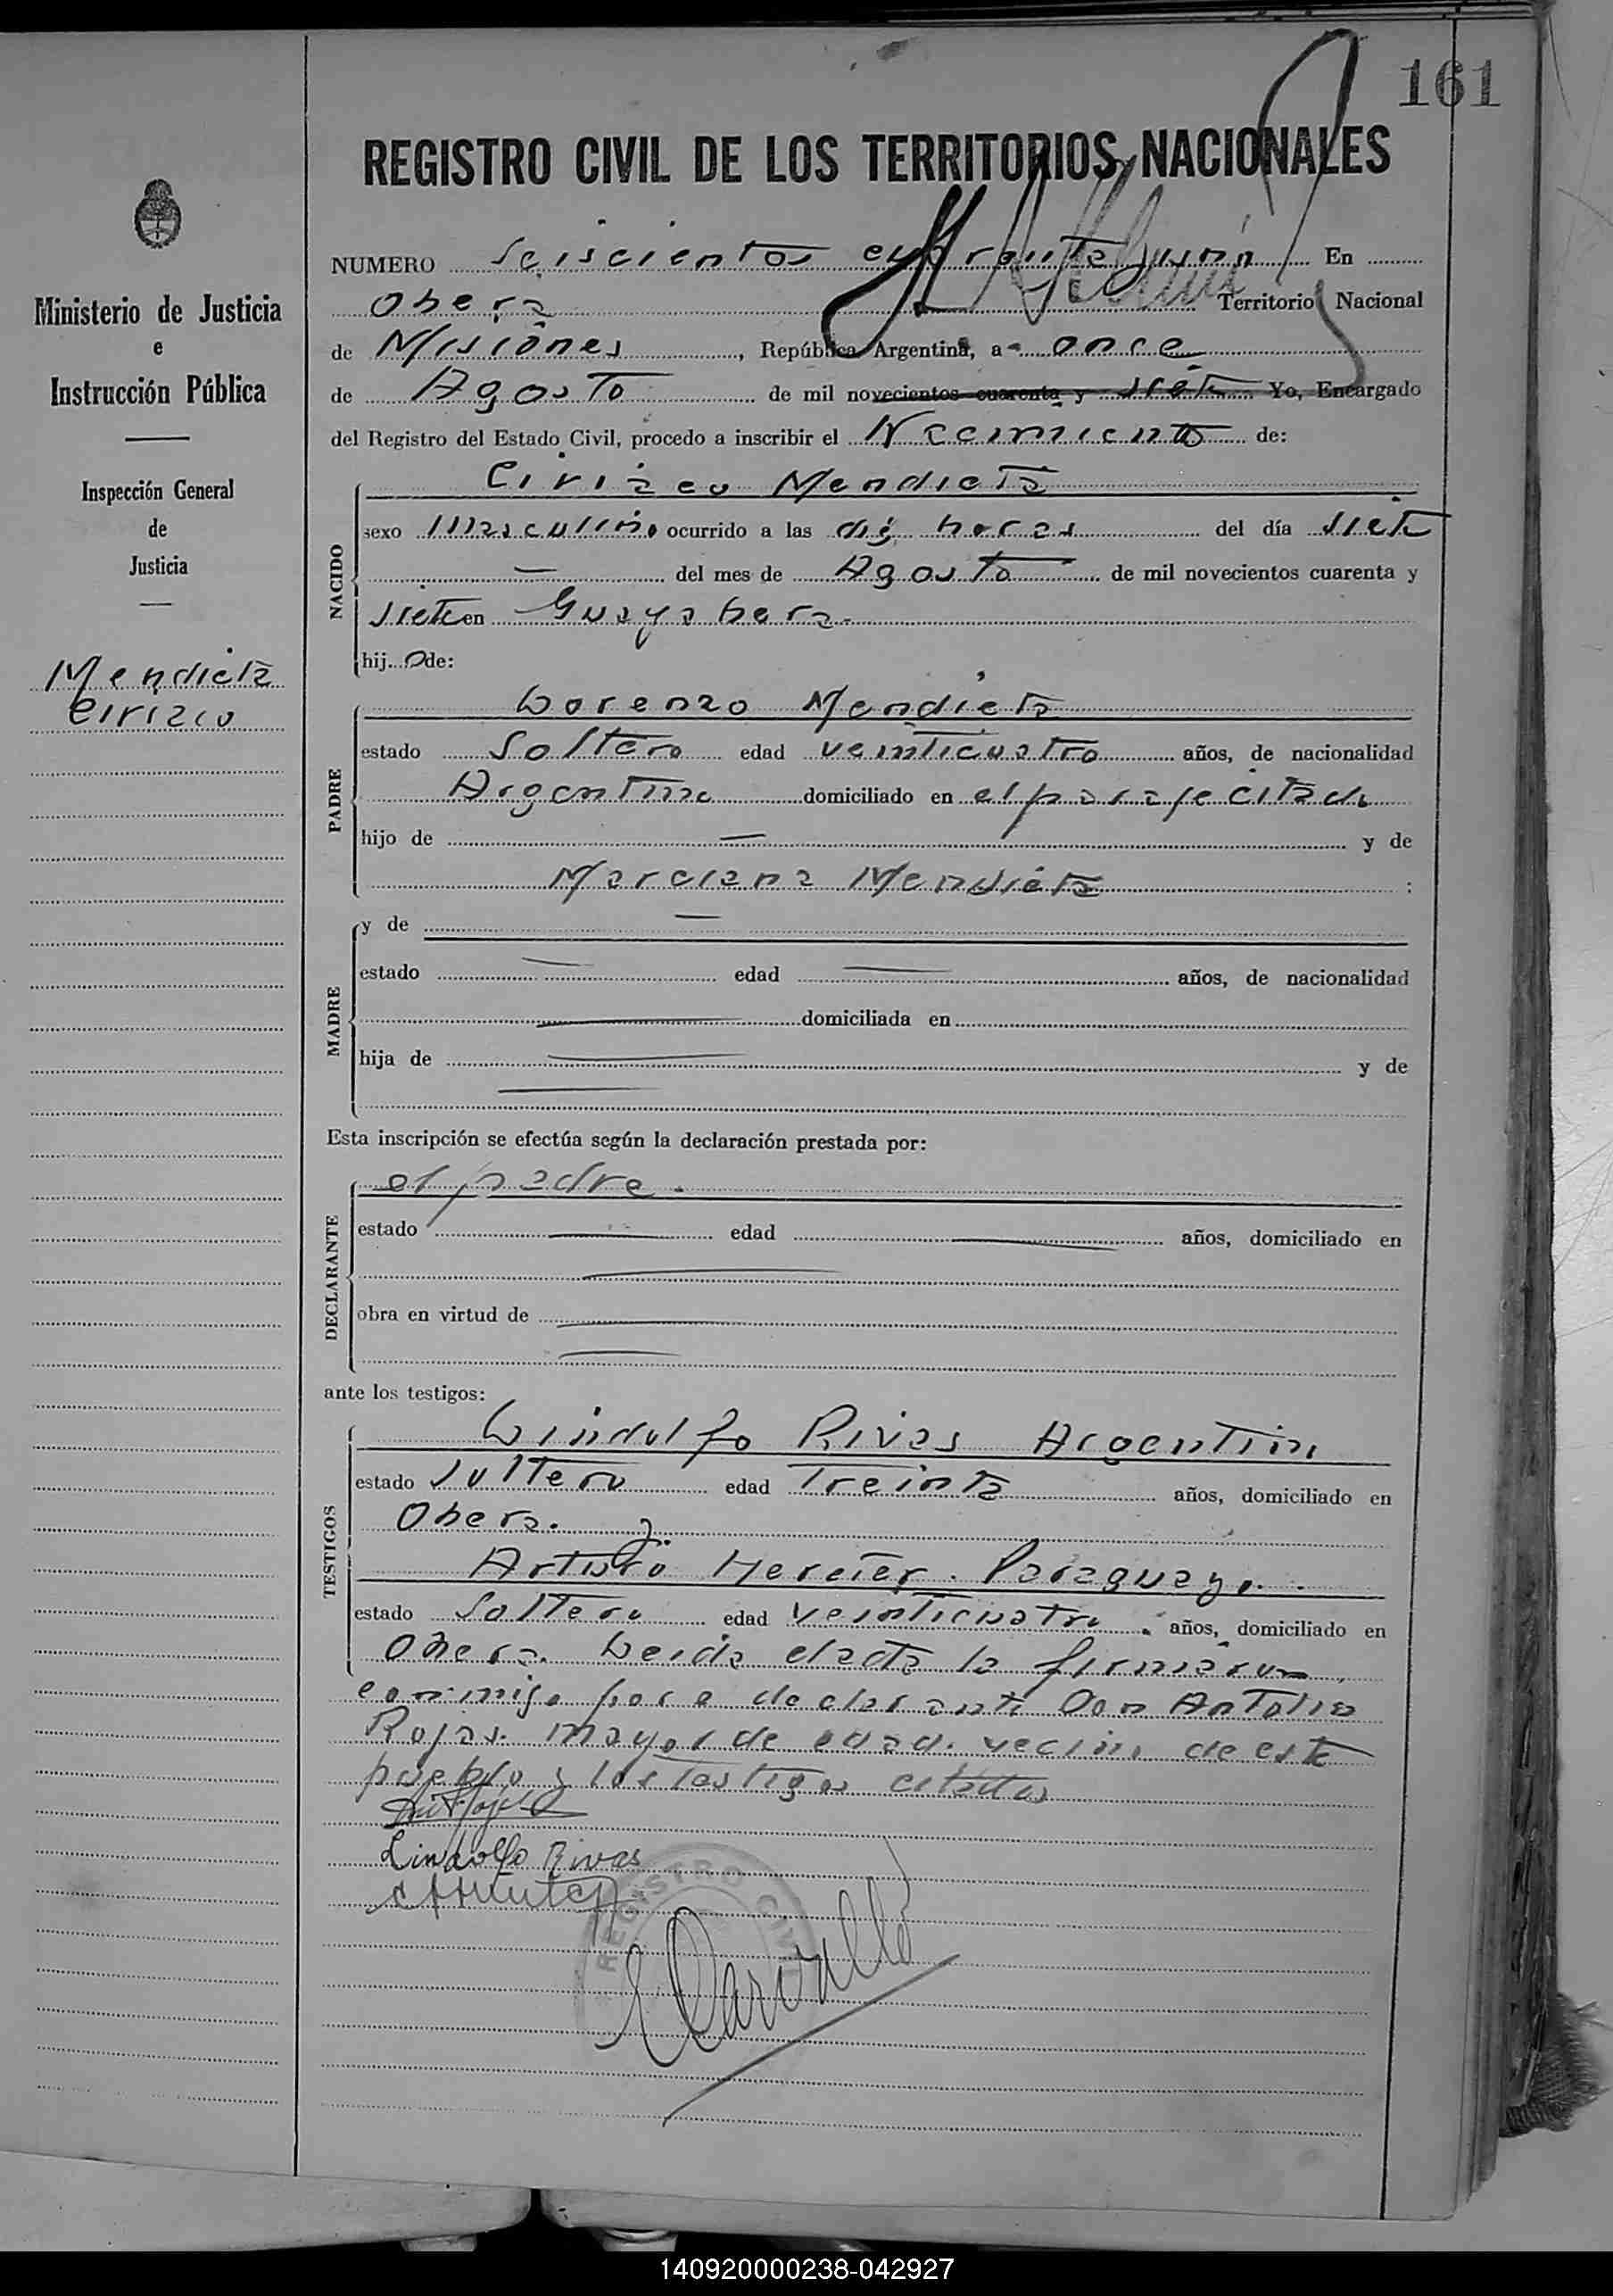 161
REGISTRO CIVIL DE LOS TERRITORIOS NACIONALES
Ministerio de Justicia
e
Instrucción Pública
Inspección General
de
Justicia
Mendieta
Ciriaco
NUMERO Seiscientos cuarenta y uno En
Obera Territorio Nacional
de Misiones, República Argentina, a once
de Agosto de mil novecientos cuarenta y siete Yo, Encargado
del Registro del Estado Civil, procedo a inscribir el Nacimiento de:
NACIDO
Ciriaco Mendieta
sexo masculino ocurrido a las diez horas del día siete
— del mes de Agosto de mil novecientos cuarenta y
siete en Guayabera.
hijo de:
PADRE
Lorenzo Mendieta
estado Soltero edad veinticuatro años, de nacionalidad
Argentino domiciliado en el paraje citado
hijo de — y de
Marciana Mendieta :
MADRE
y de —
estado — edad — años, de nacionalidad
— domiciliada en
hija de — y de
—
Esta inscripción se efectúa según la declaración prestada por:
DECLARANTE
el padre.
estado — edad — años, domiciliado en
—
obra en virtud de —
—
ante los testigos:
TESTIGOS
Lindolfo Rivas Argentino
estado soltero edad Treinta años, domiciliado en
Obera. y
Arturo Paraguayo.
estado Soltero edad veinticuatro. años, domiciliado en
Obera. Leida el acta la firmaron
conmigo por el declarante Don Antolin
Rojas. mayor de edad. vecino de este
pueblo y los testigos citados
Lindolfo Rivas
REGISTRO CIVIL
140920000238-042927